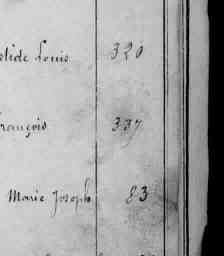 stide Louis 320
François 337
Marie Joseph 83